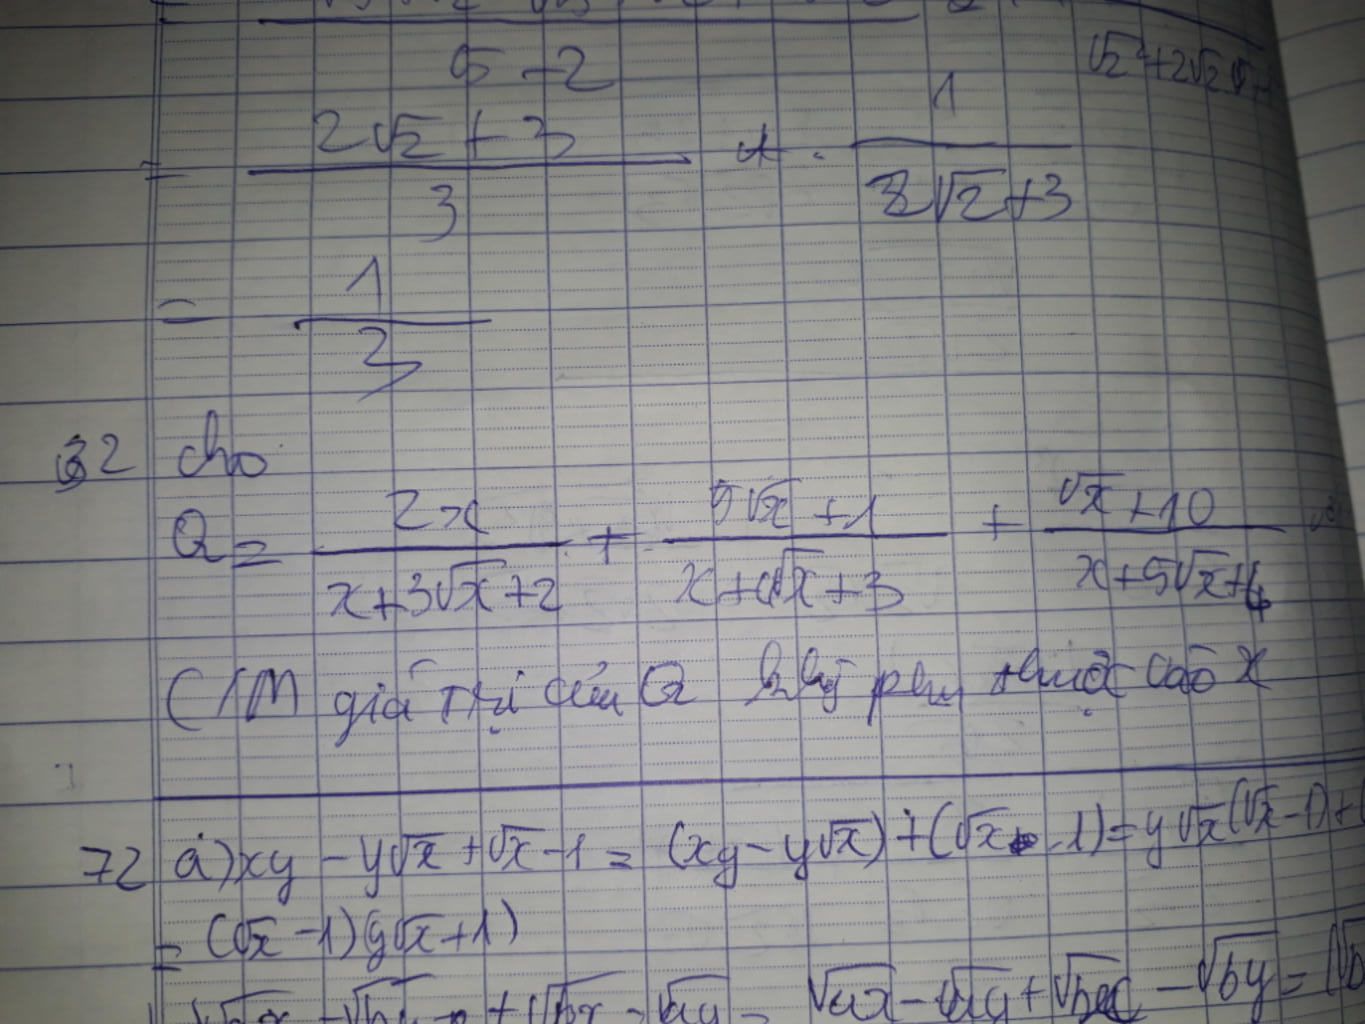 5 - 2
√2² + 2√2
= (2√2 + 3)/3 · 1/(2√2 + 3)
= 1/3
32 cho
Q = 2x/(x + 3√x + 2) + (5√x + 1)/(x + 4√x + 3) + (√x + 10)/(x + 5√x + 6)
C/M giá trị của Q phụ thuộc x
72 a) xy - y√x + √x - 1 = (xy - y√x) + (√x - 1) = y√x(√x - 1) +
= (√x - 1)(y√x + 1)
√ax - √by + √bx - √ay = √ax - √ay + √bx - √by =